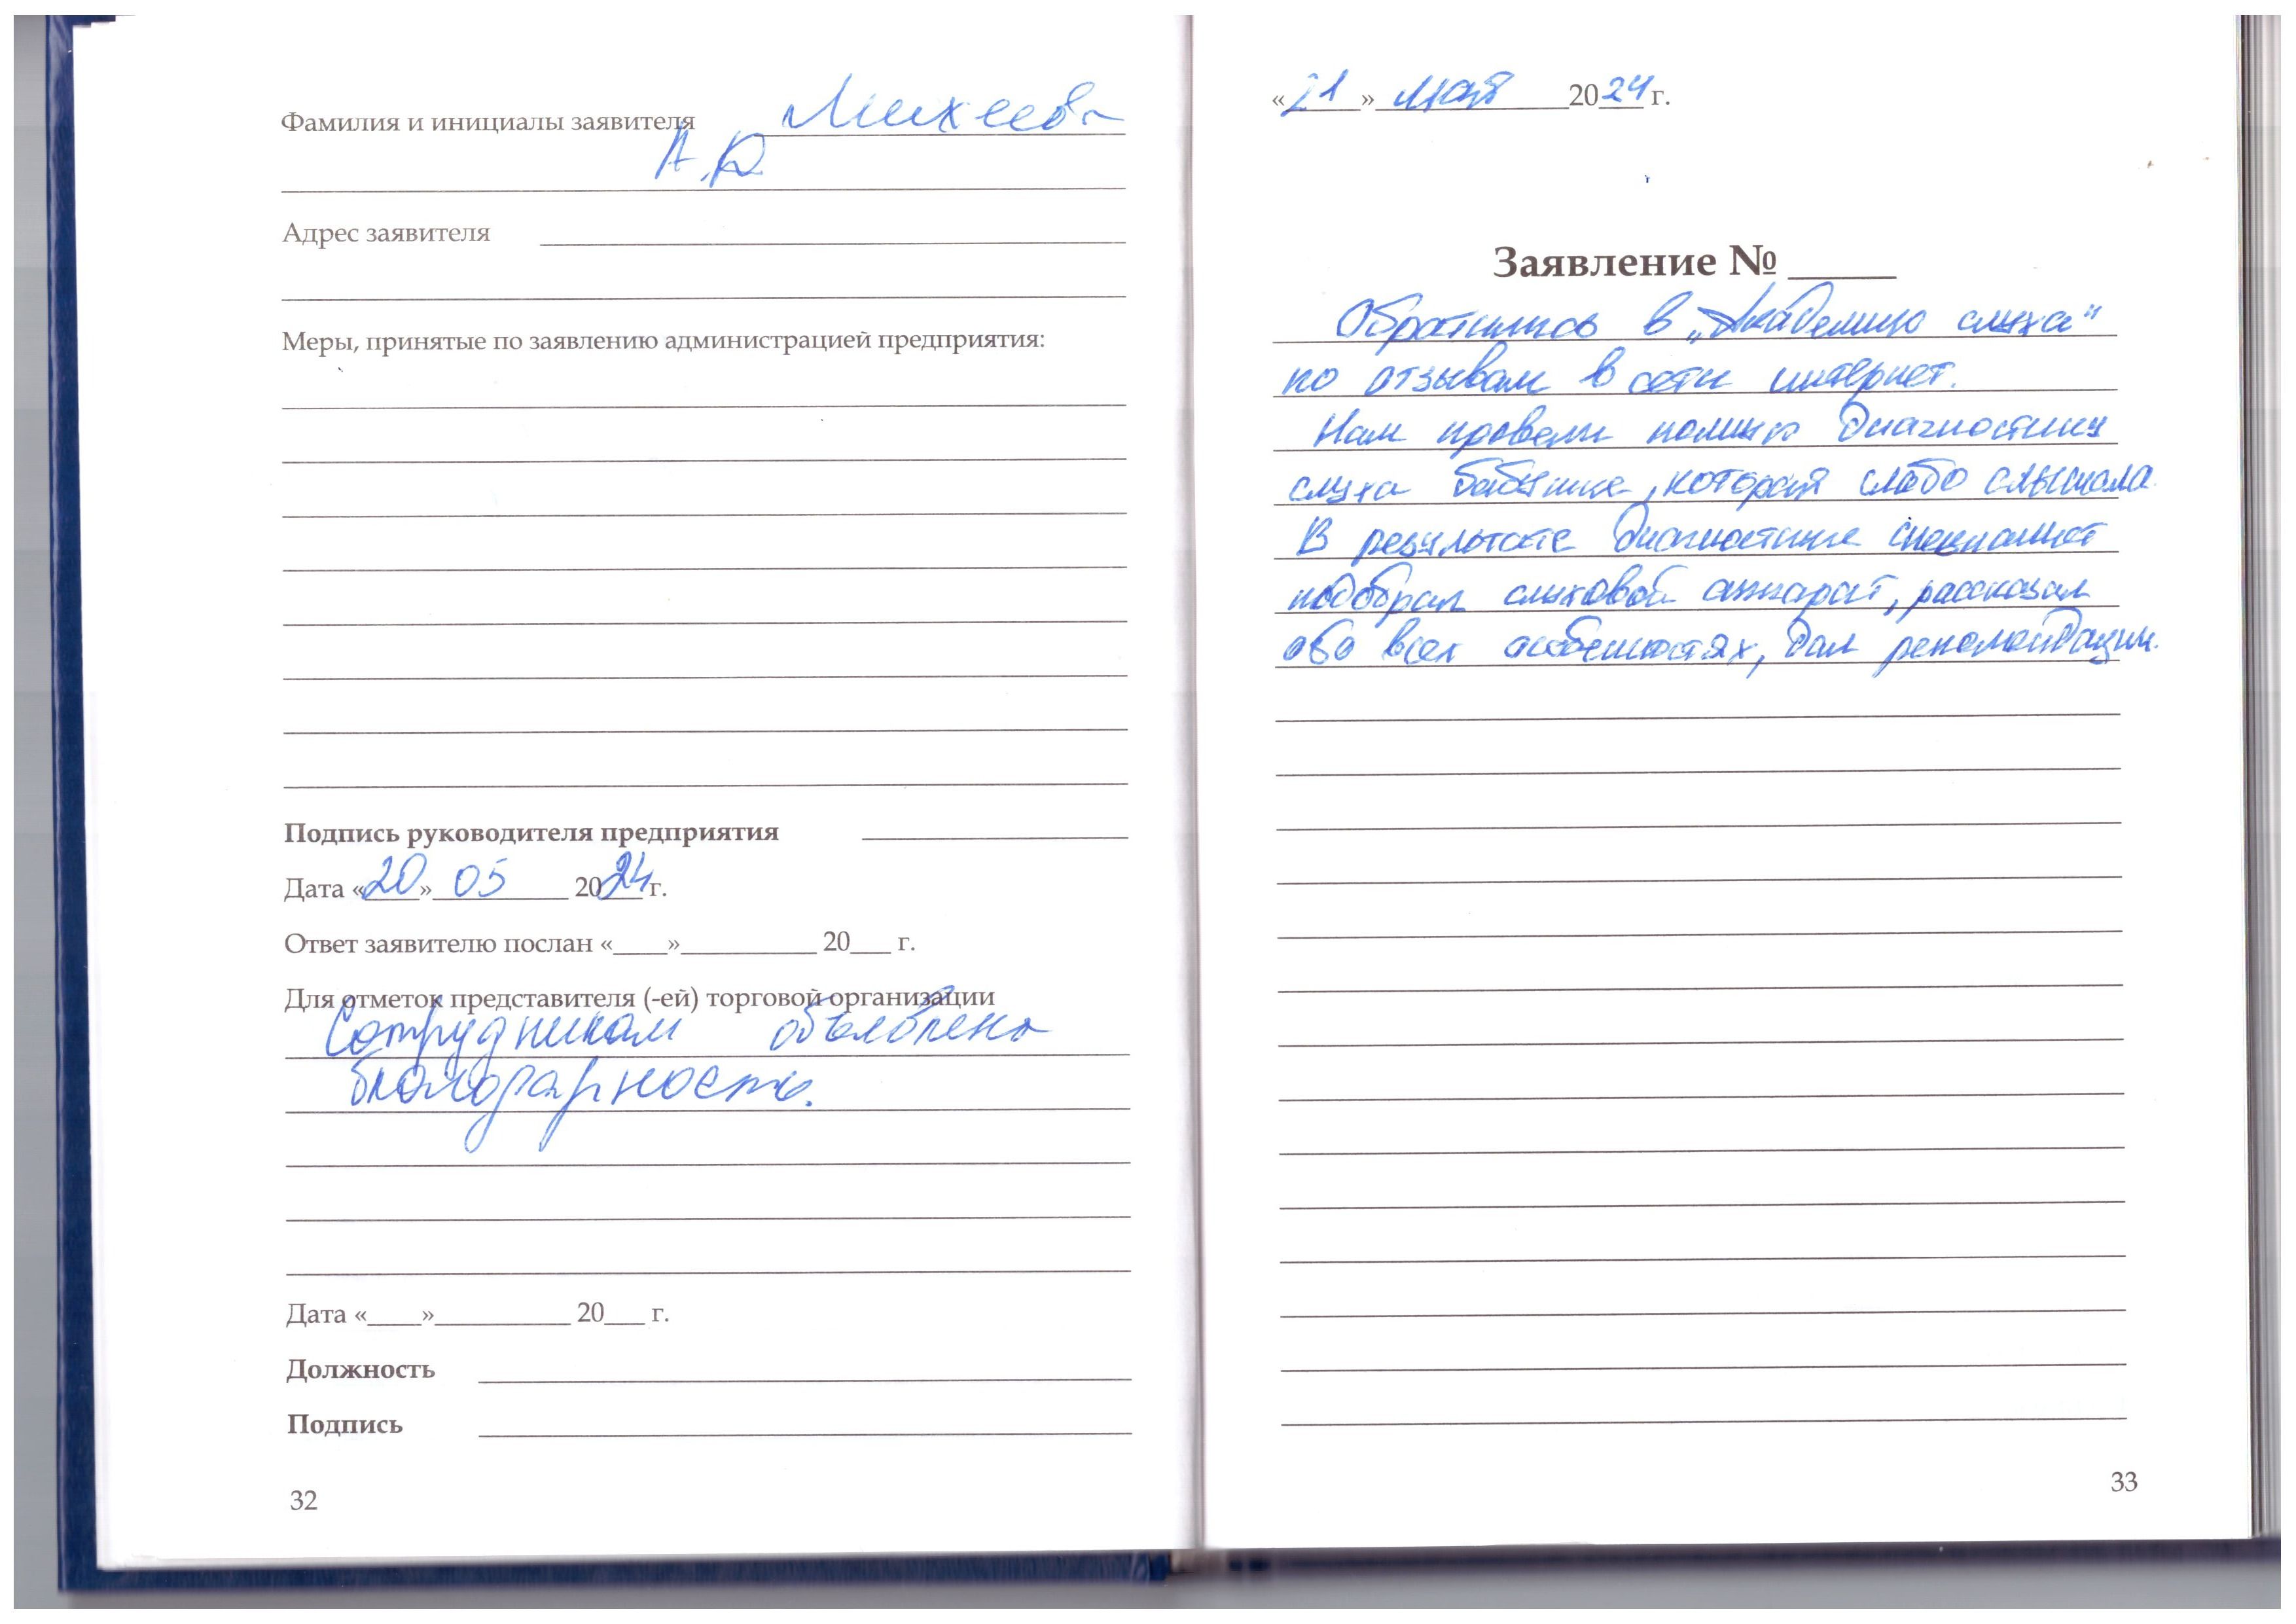 Фамилия и инициалы заявителя Михеева
А.Ю
Адрес заявителя
Меры, принятые по заявлению администрацией предприятия:
Подпись руководителя предприятия
Дата «20» 05 2024 г.
Ответ заявителю послан «____»__________ 20___ г.
Для отметок представителя (-ей) торговой организации
Сотрудникам объявлена
благодарность.
Дата «____»__________ 20___ г.
Должность
Подпись
32
«21» мая 2024 г.
Заявление № _____
Обратились в „Академию слуха“
по отзывам в сети интернет.
Нам провели полную диагностику
слуха бабушке, которая слабо слышала.
В результате диагностики специалист
подобрал слуховой аппарат, рассказал
обо всех особенностях, дал рекомендации.
33